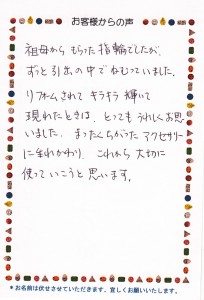 お客様からの声
祖母から もらった指輪でしたが、
ずっと引出の中でねむっていました。
リフォームされて キラキラ 輝いて
現れたときは、とっても うれしくお思
いしました。まったくちがった アクセサリー
に生れかわり、これから 大切に
使っていこうと思います。
＊お名前は伏せさせていただきます。宜しくお願いいたします。